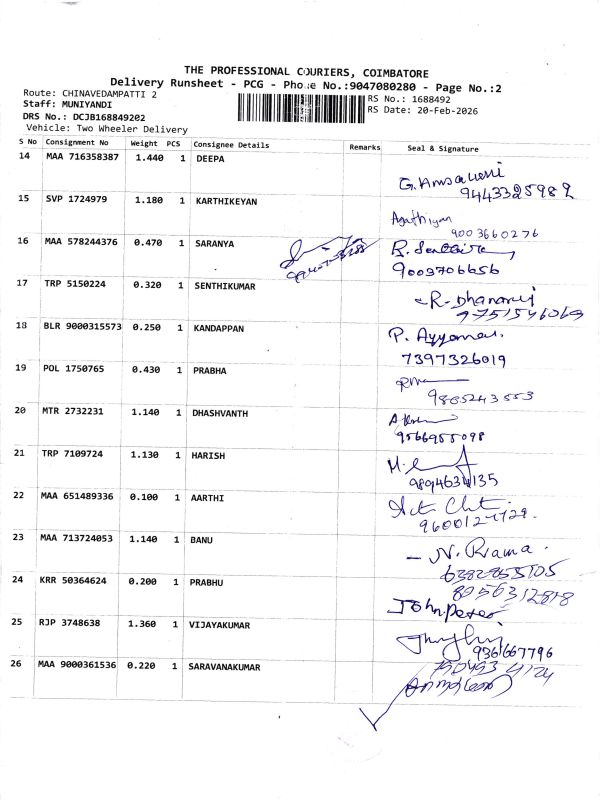 THE PROFESSIONAL COURIERS, COIMBATORE
Delivery Runsheet - PCG - Phone No.:9047080280 - Page No.:2
Route: CHINAVEDAMPATTI 2
RS No.: 1688492
Staff: MUNIYANDI
RS Date: 20-Feb-2026
DRS No.: DCJB168849202
Vehicle: Two Wheeler Delivery
S No Consignment No Weight PCS Consignee Details Remarks Seal & Signature
14 MAA 716358387 1.440 1 DEEPA
9443325982
15 SVP 1724979 1.180 1 KARTHIKEYAN
Agathiyan
9003660276
16 MAA 578244376 0.470 1 SARANYA
9003706656
17 TRP 5150224 0.320 1 SENTHIKUMAR
R. Dhanaraj
9751546069
18 BLR 9000315573 0.250 1 KANDAPPAN
P. Ayyamas
7397326019
19 POL 1750765 0.430 1 PRABHA
9865243553
20 MTR 2732231 1.140 1 DHASHVANTH
9566955098
21 TRP 7109724 1.130 1 HARISH
9894634135
22 MAA 651489336 0.100 1 AARTHI
9600127729.
23 MAA 713724053 1.140 1 BANU
N. Rama
6382855105
24 KRR 50364624 0.200 1 PRABHU
8056312818
John peter
25 RJP 3748638 1.360 1 VIJAYAKUMAR
9361667796
26 MAA 9000361536 0.220 1 SARAVANAKUMAR